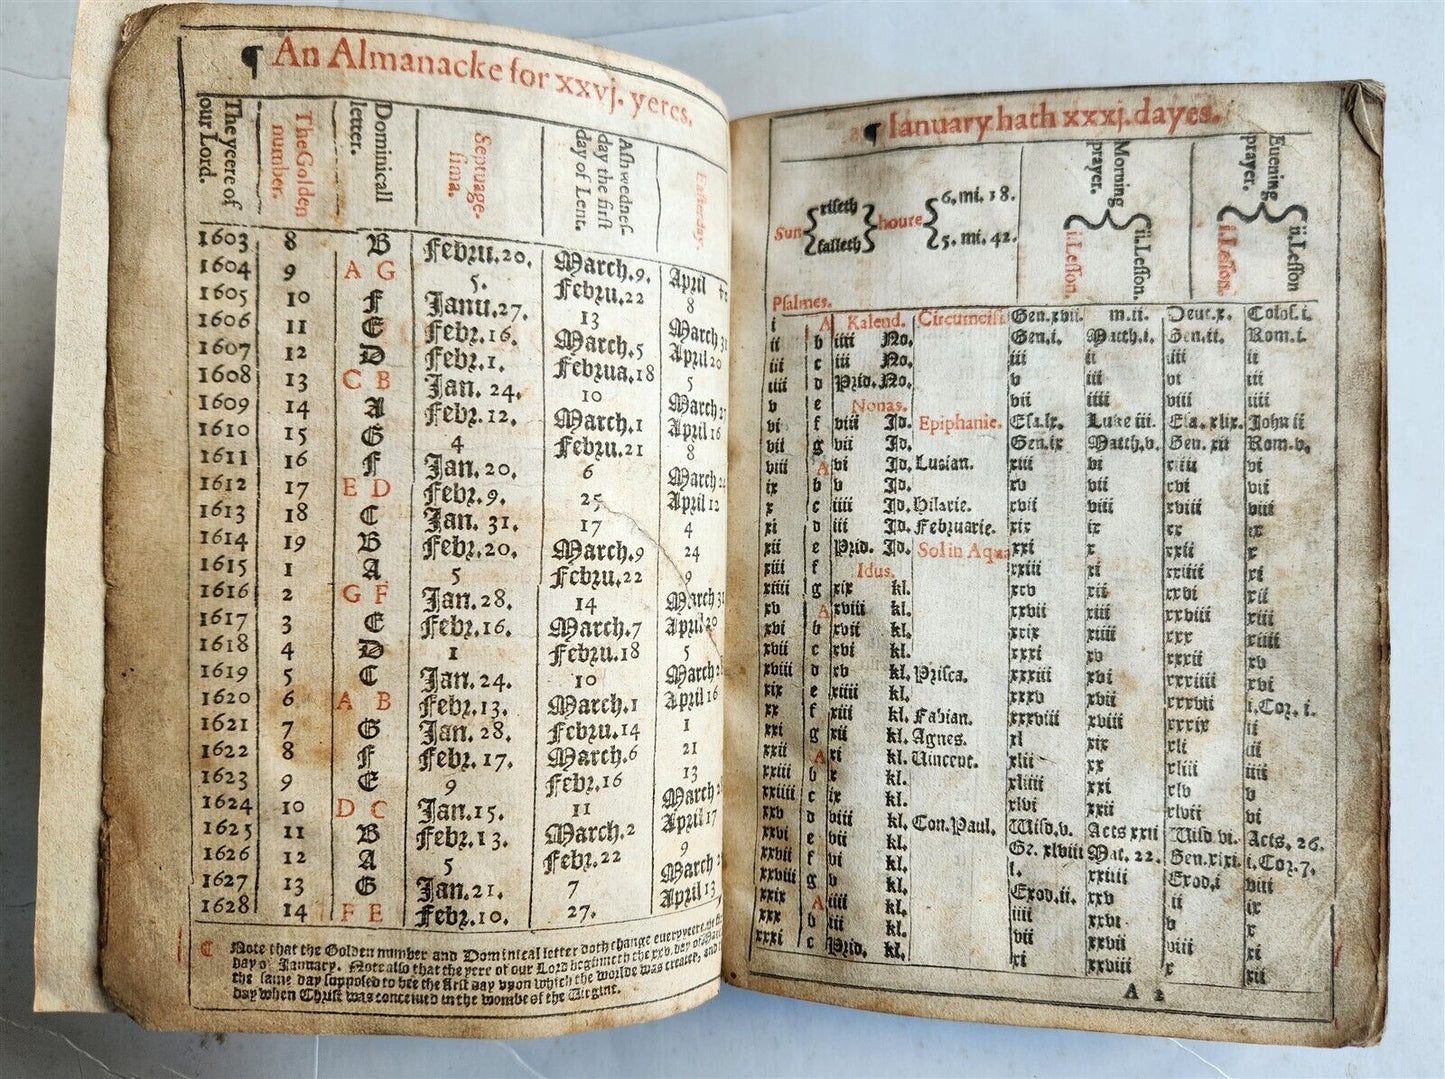 ¶ An Almanacke for xxvj. yeres.
The yeere of our Lord.
The Golden number.
Dominicall letter.
Septuage-
sima.
Ashwednes-
day the first
day of Lent.
Easterday.
1603 8 B Febru.20. March.9. April
1604 9 A G 5. Febru.22 8
1605 10 F Janu.27. 13 March
1606 11 E Febr.16. March.5 April 20
1607 12 D Febr.1. Februa.18 5
1608 13 C B Jan. 24. 10 March
1609 14 A Febr.12. March.1 April 16
1610 15 G 4 Febru.21 8
1611 16 F Jan.20. 6 March
1612 17 E D Febr.9. 25 April 12
1613 18 C Jan. 31. 17 4
1614 19 B Febr.20. March.9 24
1615 1 A 5 Febru.22 9
1616 2 G F Jan.28. 14 March 31
1617 3 E Febr.16. March.7 April 20
1618 4 D 1 Febru.18 5
1619 5 C Jan.24. 10 March
1620 6 A B Febr.13. March.1 April 16
1621 7 G Jan.28. Febru.14 1
1622 8 F Febr.17. March.6 21
1623 9 E 9 Febr.16 13
1624 10 D C Jan.15. 11 March
1625 11 B Febr.13. March.2 April 17
1626 12 A 5 Febr.22 9
1627 13 G Jan.21. 7 March
1628 14 F E Febr.10. 27. April 13
Note that the Golden number and Dominicall letter doth change euery yeere
day of January. Note also that the yere of our Lord beginneth the xxv. day of
the same day supposed to bee the first day vpon which the worlde was created, and
day when Christ was conceiued in the wombe of the Virgine.
¶ Ianuary hath xxxj. dayes.
Sun { riseth falleth } houre { 6. mi. 18. 5. mi. 42.
Morning prayer.
Euening prayer.
i.Lesson. ii.Lesson. i.Lesson. ii.Lesson
Psalmes.
i A Kalend. Circumcisi. Gen.xvii. m.ii. Deut.x. Colos.i.
ii b iiii No. Gen.i. Matth.i. Gen.ii. Rom.i.
iii c iii No. iii ii iiii ii
iiii d Prid.No. v iii vi iii
v e Nonas. vii iiii viii iiii
vi f viii Id. Epiphanie. Esa.lx. Luke iii. Esa.xlix. John ii
vii g vii Id. Gen.ix Matth.v. Gen. xii Rom.v.
viii A vi Id. Lusian. xiii vi xiiii vi
ix b v Id. xv vii xvi vii
x c iiii Id. Hilarie. xvii viii xviii viii
xi d iii Id. Februarie. xix ix xx ix
xii e Prid. Id. Sol in Aqua xxi x xxii x
xiii f Idus. xxiii xi xxiiii xi
xiiii g xix kl. xxv xii xxvi xii
xv A xviii kl. xxvii xiii xxviii xiii
xvi b xvii kl. xxix xiiii xxx xiiii
xvii c xvi kl. xxxi xv xxxii xv
xviii d xv kl. Prisca. xxxiii xvi xxxiiii xvi
xix e xiiii kl. xxxv xvii xxxvii i.Cor. i.
xx f xiii kl. Fabian. xxxviii xviii xxxix ii
xxi g xii kl. Agnes. xl xix xli iii
xxii A xi kl. Vincent. xlii xx xliii iiii
xxiii b x kl. xliiii xxi xlv v
xxiiii c ix kl. xlvi xxii xlvii vi
xxv d viii kl. Con.Paul. Wisd.v. Acts xxii Wisd vi. Acts. 26.
xxvi e vii kl. Ge. xlviii Mat. 22. Gen.xlxi. i.Cor.7.
xxvii f vi kl. l. xxiiii Exod.i viii
xxviii g v kl. Exod.ii. xxv ii ix
xxix A iiii kl. iiii xxvi v x
xxx b iii kl. vii xxvii viii xi
xxxi c Prid. kl. xi xxviii x xii
A 2